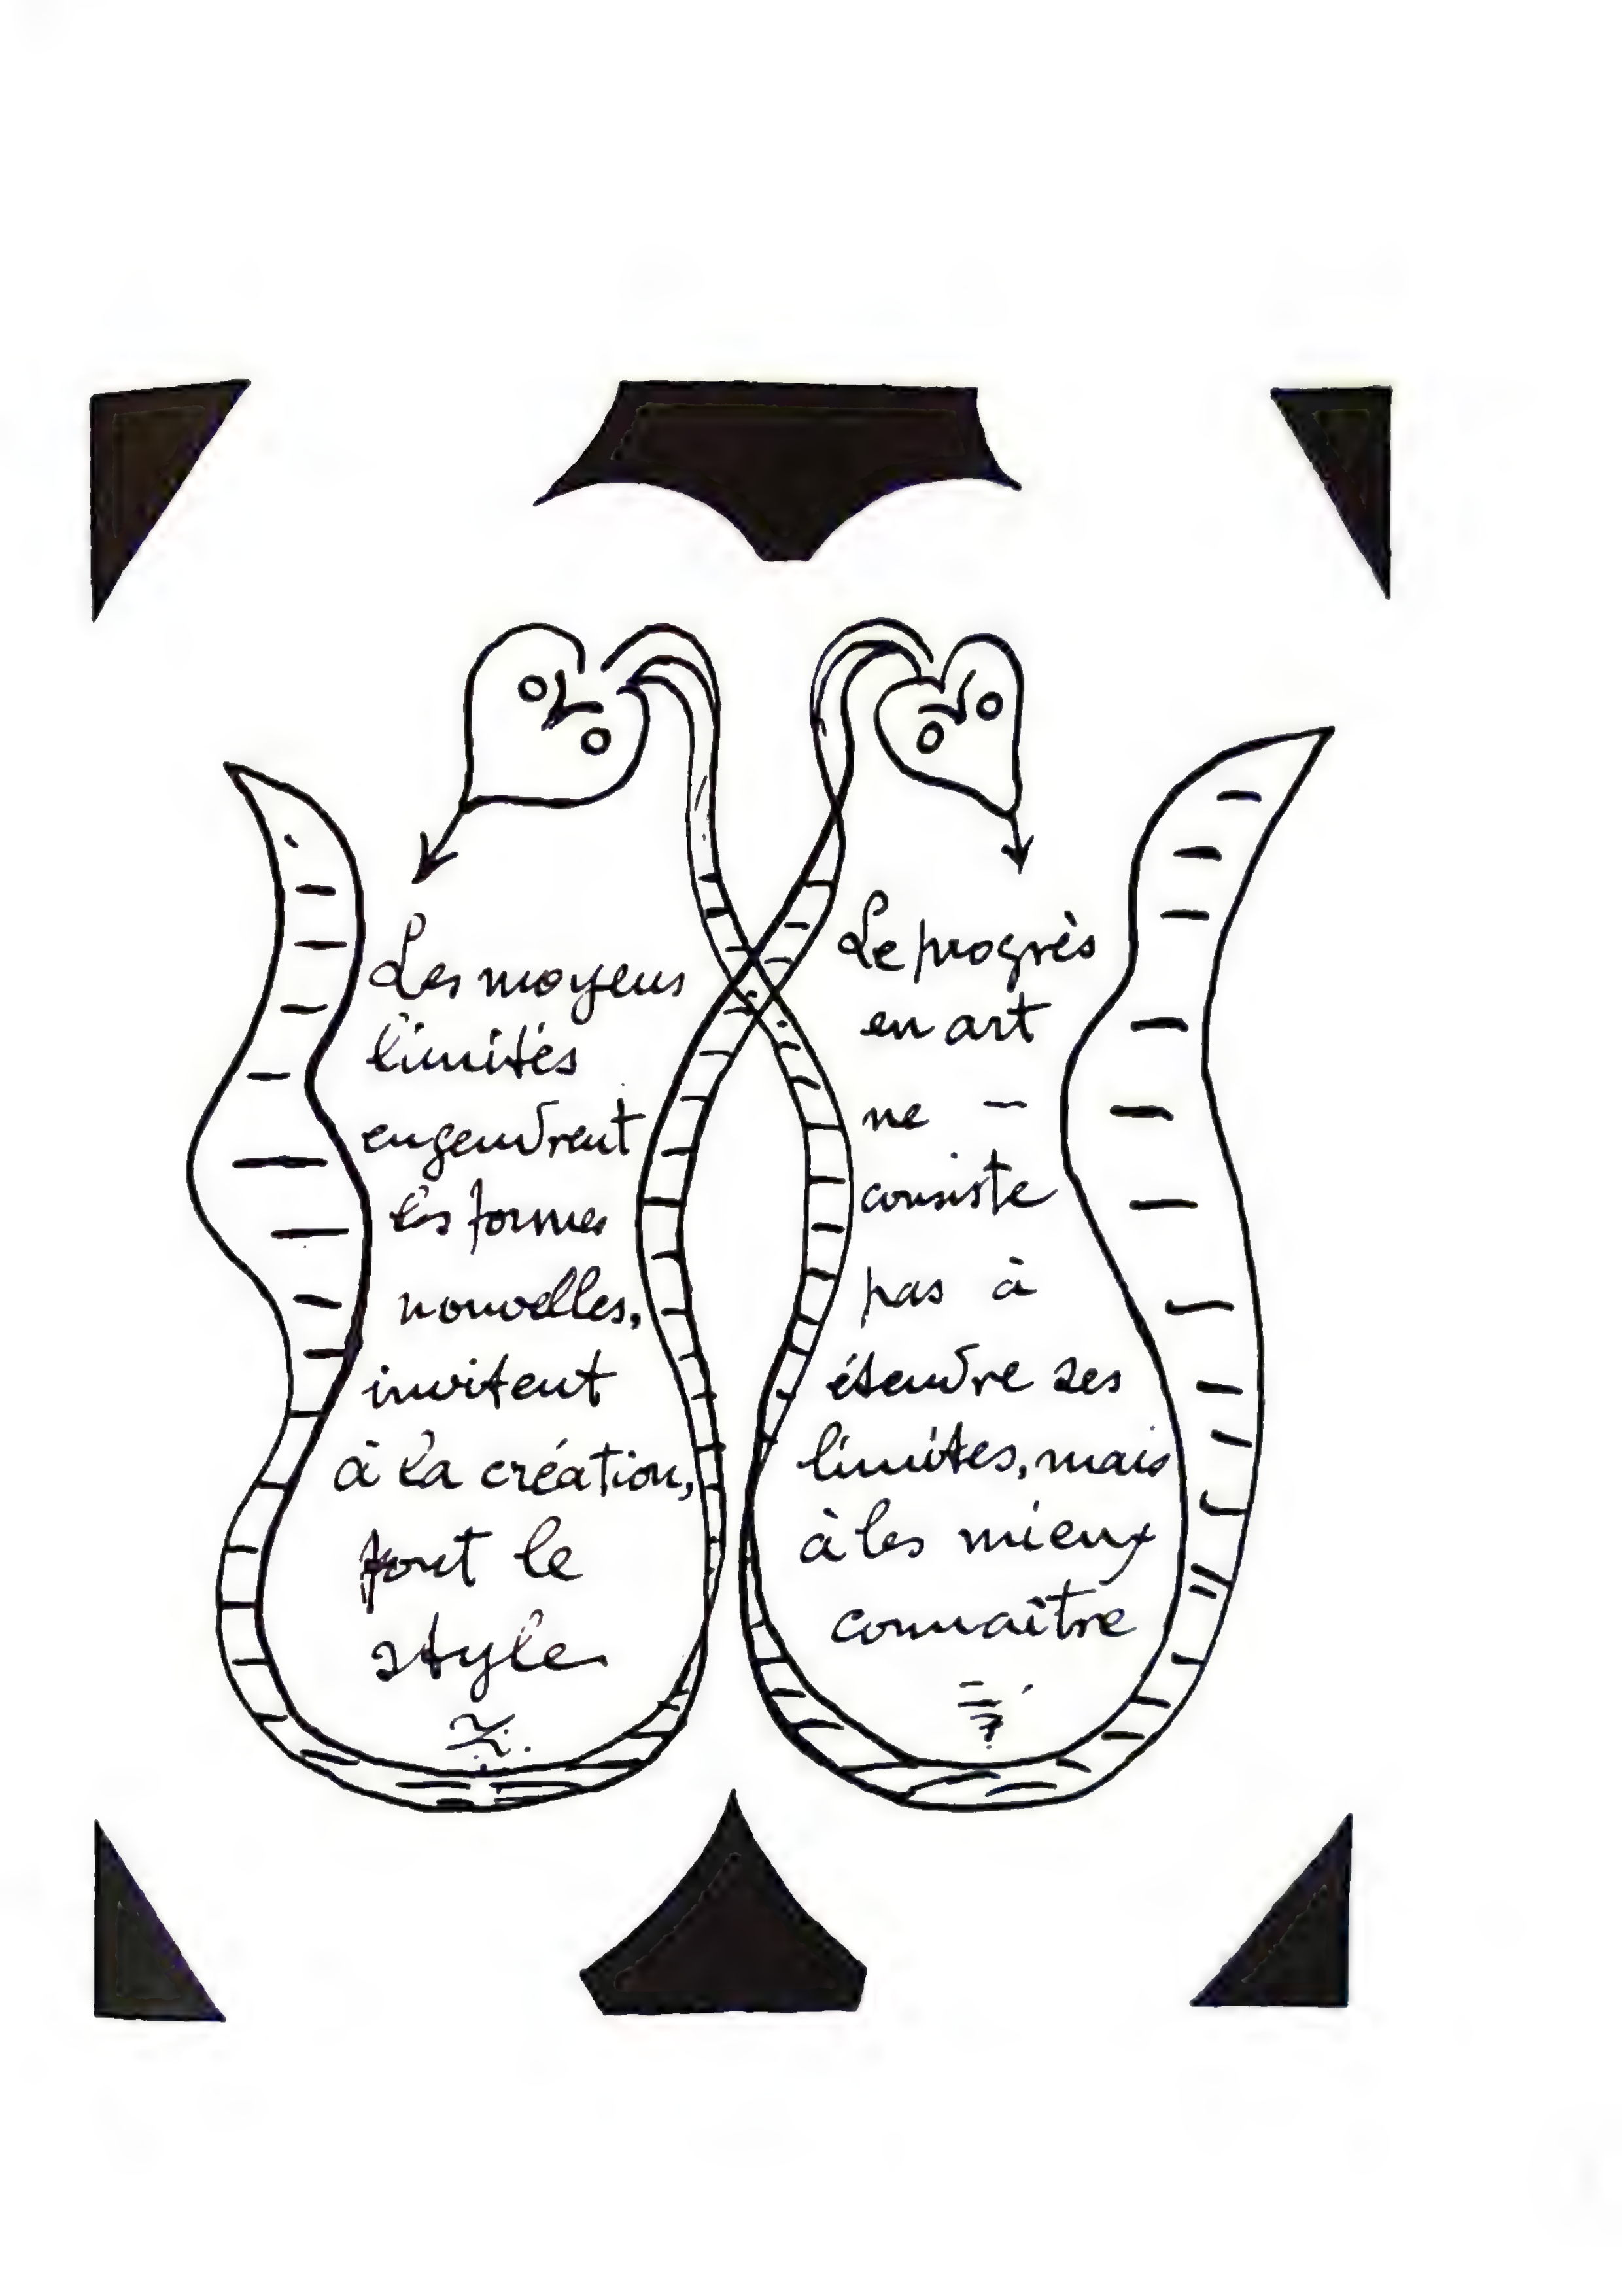 Les moyens
limités
engendrent
les formes
nouvelles,
invitent
à la création,
font le
style
Le progrès
en art
ne —
consiste
pas à
étendre ses
limites, mais
à les mieux
connaître